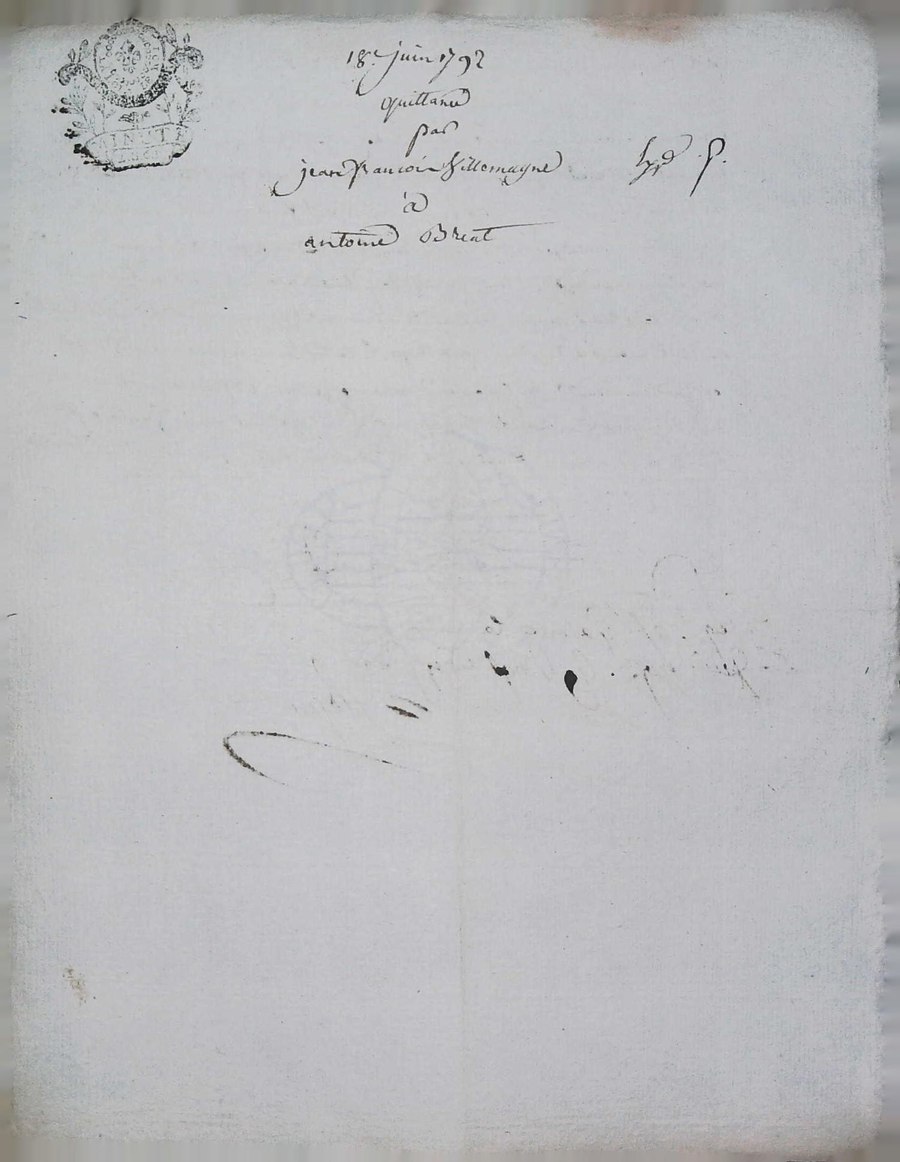 18e juin 1792
quittance
par
jean francois Villemagne
à
antoine Breat